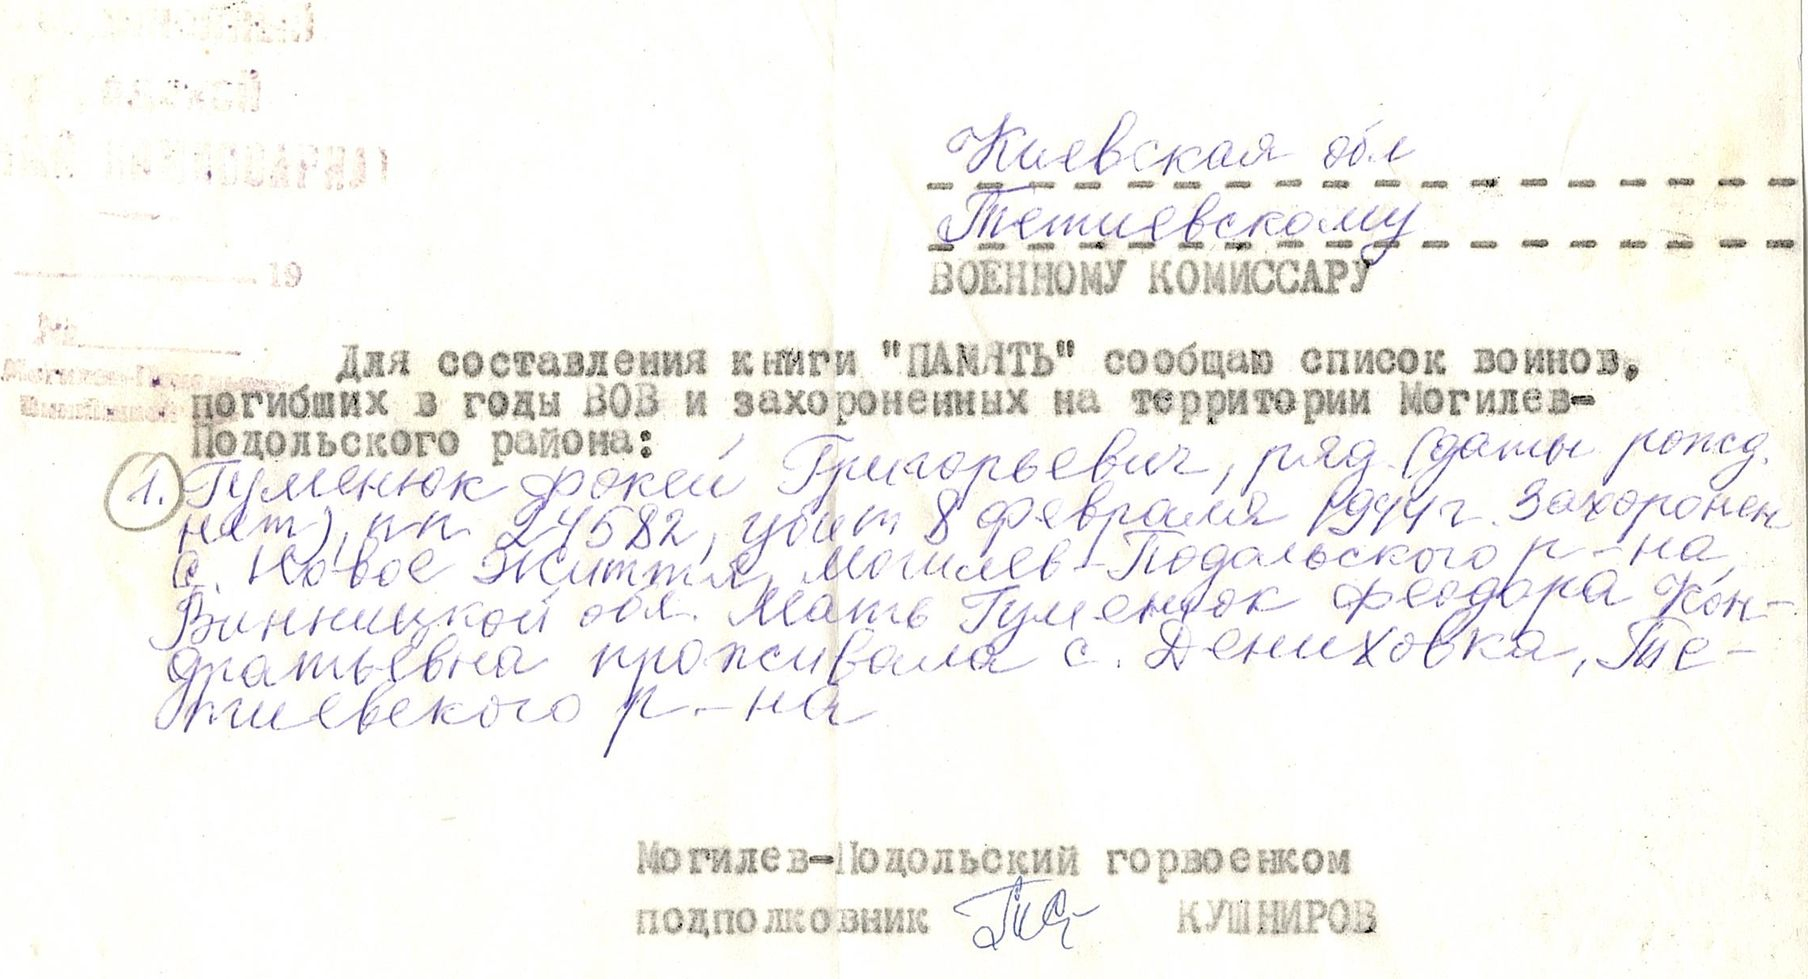 Киевская обл
Тетиевскому
ВОЕННОМУ КОМИССАРУ
19
Для составления книги "ПАМЯТЬ" сообщаю список воинов,
погибших в годы ВОВ и захороненных на территории Могилев-
Подольского района:
1. Гуменюк Фокей Григорьевич, ряд. (даты рожд.
нет), пп 24582, убит 8 февраля 1944 г. Захоронен
с. Новое Життя, Могилев-Подольского р-на,
Винницкой обл. Мать Гуменюк Феодора Кон-
дратьевна проживала с. Дениховка, Те-
тиевского р-на
Могилев-Подольский горвоенком
подполковник КУШНИРОВ